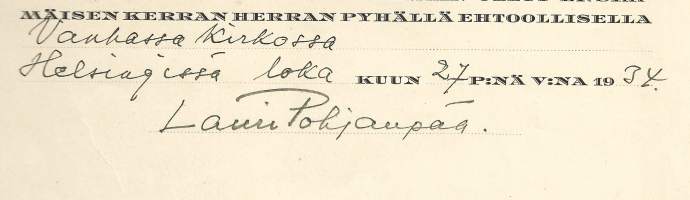 MÄISEN KERRAN HERRAN PYHÄLLÄ EHTOOLLISELLA
Vanhassa Kirkossa
Helsingissä loka KUUN 27 P:NÄ V:NA 1934.
Lauri Pohjanpää.